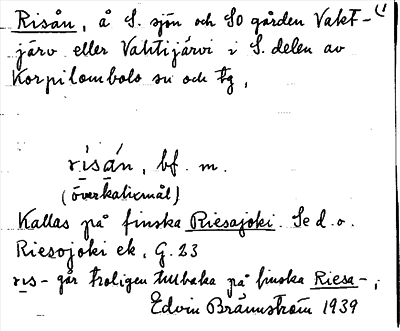 Risån, å S. sjön och SO gården Vakt- (1
järv eller Vahtijärvi i S. delen av
Korpilombolo sn och tg,
rísán, bf. m.
(överkalixmål)
Kallas på finska Riesajoki. Se d. o.
Riesojoki ek. G. 23
ris- går troligen tillbaka på finska Riesa-,
Edvin Brännström 1939